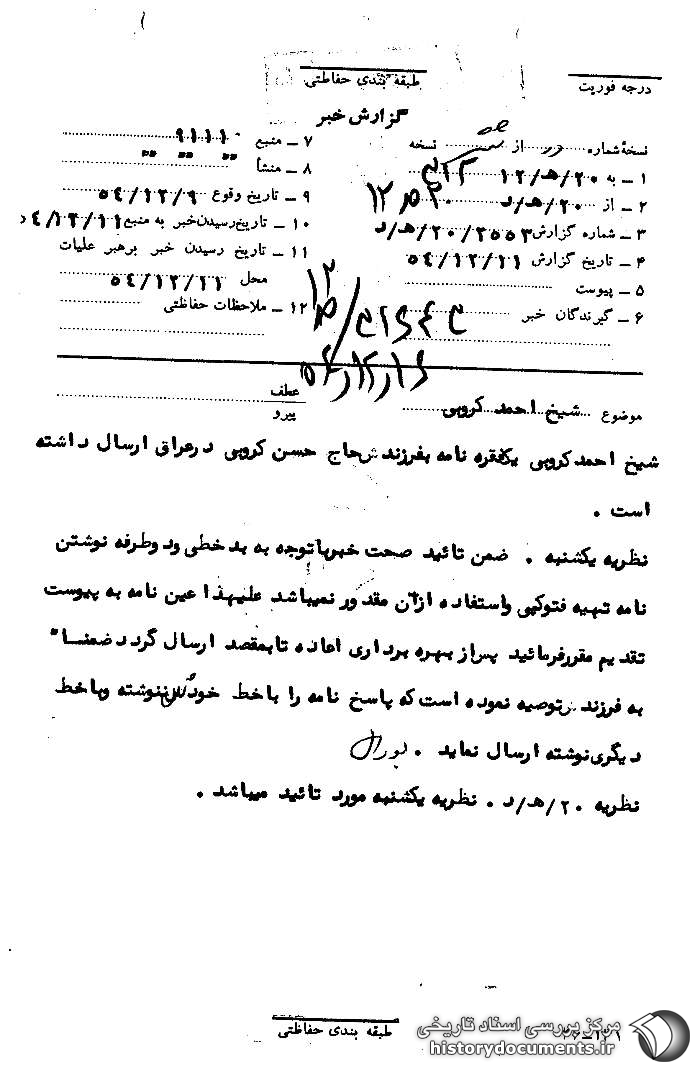 طبقه بندی حفاظتی
درجه فوریت
گزارش خبر
نسخهٔ شماره از نسخه
۱ ـ به ۲۰/ﻫ/۱۲
۲ ـ از ۲۰/ﻫ/د
۳ ـ شماره گزارش ۲۰/۲۵۵۳/ﻫ/د
۴ ـ تاریخ گزارش ۵۴/۱۲/۱۱
۵ ـ پیوست
۶ ـ گیرندگان خبر
۷ ـ منبع ۹۱۱۱۰
۸ ـ منشأ " " "
۹ ـ تاریخ وقوع ۵۴/۱۲/۹
۱۰ ـ تاریخ رسیدن خبر به منبع ۵۴/۱۲/۱۱
۱۱ ـ تاریخ رسیدن خبر برهبر عملیات
محل ۵۴/۱۲/۱۱
۱۲ ـ ملاحظات حفاظتی
موضوع شیخ احمد کروبی
عطف
پیرو
شیخ احمد کروبی یکفقره نامه بفرزندش حاج حسن کروبی در عراق ارسال داشته
است .
نظریه یکشنبه . ضمن تائید صحت خبر باتوجه به بدخطی ودوطرفه نوشتن
نامه تهیه فتوکپی واستفاده ازآن مقدور نمیباشد علیهذا عین نامه به پیوست
تقدیم مقررفرمائید پس از بهره برداری اعاده تابمقصد ارسال گردد ضمنا"
به فرزندش توصیه نموده است که پاسخ نامه را باخط خودش ننوشته وباخط
دیگری نوشته ارسال نماید .
نظریه ۲۰/ﻫ/د . نظریه یکشنبه مورد تائید میباشد .
طبقه بندی حفاظتی
مرکز بررسی اسناد تاریخی
historydocuments.ir